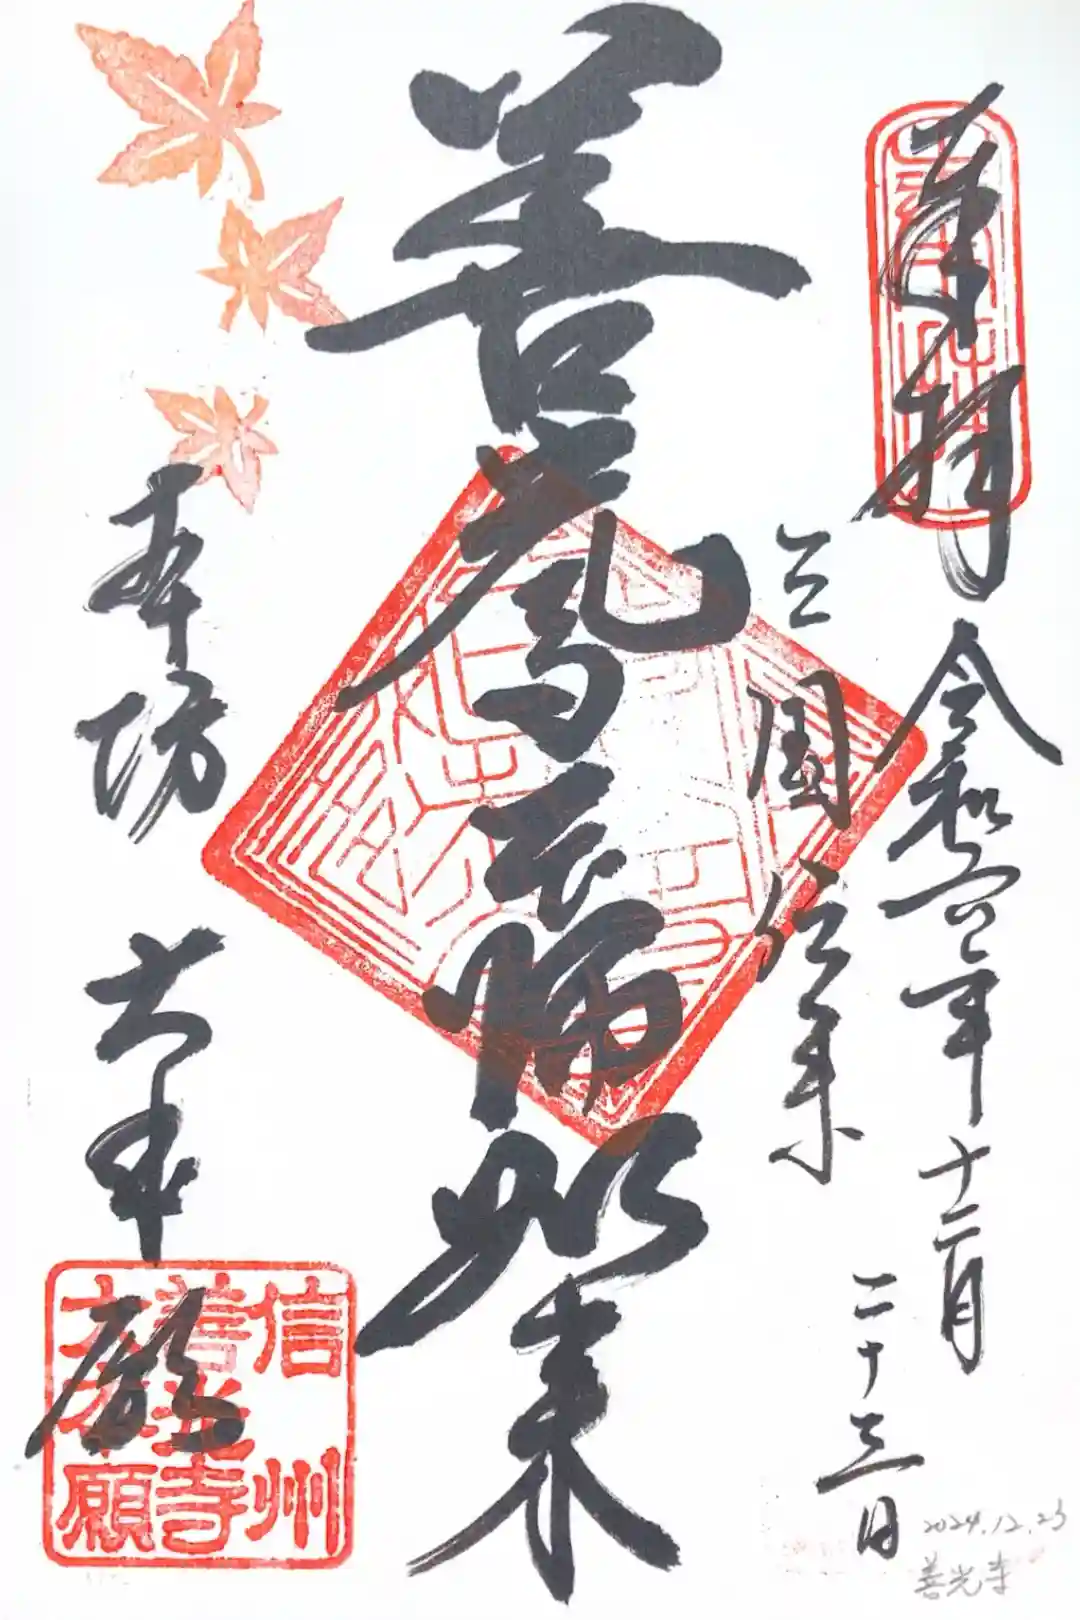 奉拝
令和六年十二月
二十三日
三国伝来
善
如来
本坊 大本願
信州
善光寺
大本願
2024.12.23
善光寺